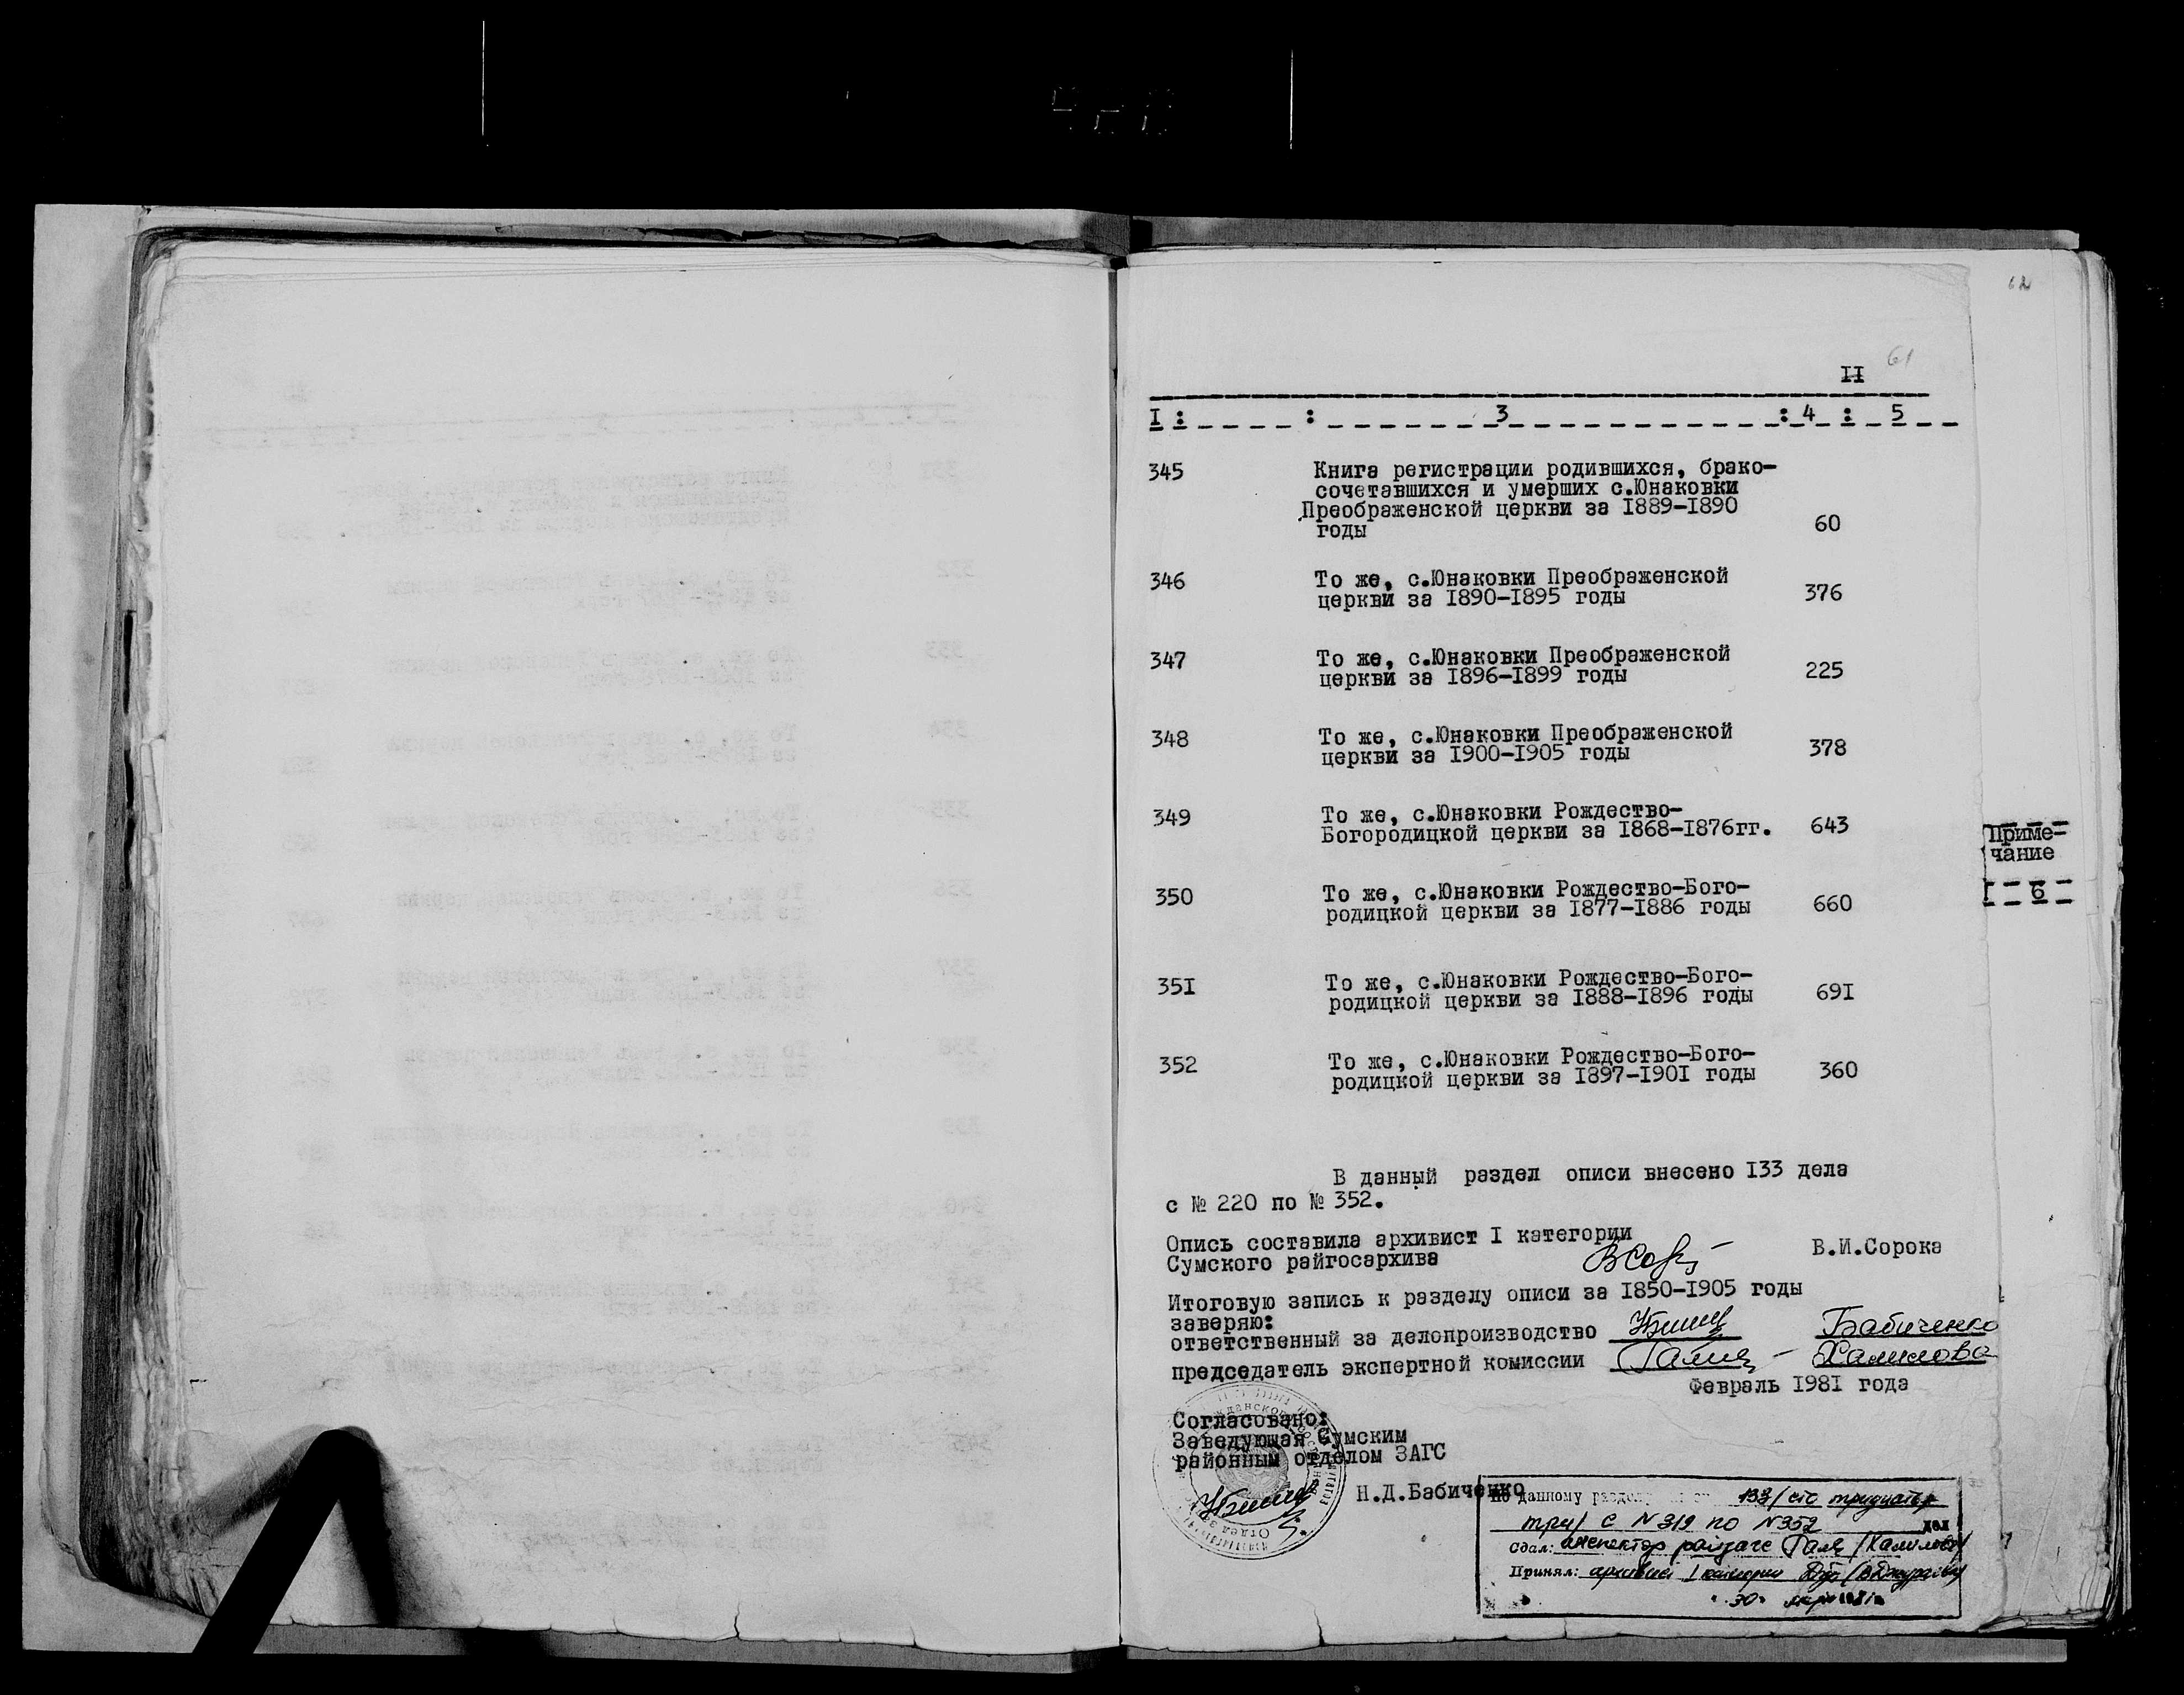 62
61
II
I : : 3 : 4 : 5
345 Книга регистрации родившихся, брако-
сочетавшихся и умерших с.Юнаковки
Преображенской церкви за I889-I890
годы 60
346 То же, с.Юнаковки Преображенской
церкви за I890-I895 годы 376
347 То же, с.Юнаковки Преображенской
церкви за I896-I899 годы 225
348 То же, с.Юнаковки Преображенской
церкви за I900-I905 годы 378
349 То же, с.Юнаковки Рождество-
Богородицкой церкви за I868-I876гг. 643
Приме-
чание
6
350 То же, с.Юнаковки Рождество-Бого-
родицкой церкви за I877-I886 годы 660
35I То же, с.Юнаковки Рождество-Бого-
родицкой церкви за I888-I896 годы 69I
352 То же, с.Юнаковки Рождество-Бого-
родицкой церкви за I897-I90I годы 360
В данный раздел описи внесено I33 дела
с № 220 по № 352.
Опись составила архивист I категории
Сумского райгосархива В.И.Сорока
Итоговую запись к разделу описи за I850-I905 годы
заверяю:
ответственный за делопроизводство Бабиченко
председатель экспертной комиссии Халилова
Февраль I98I года
Согласовано:
Заведующая Сумским
районным отделом ЗАГС
Н.Д.Бабиченко
По данному 133/сто тридцать
три/ с N 319 по N 352 дел
Сдал: инспектор
Принял: архивист I категории
30